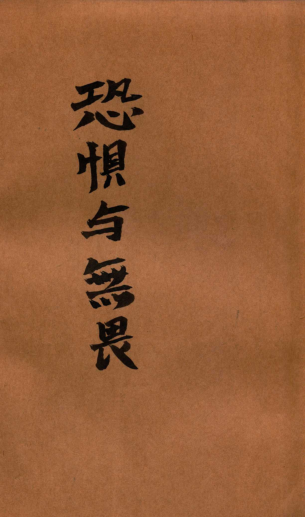 恐惧与無畏